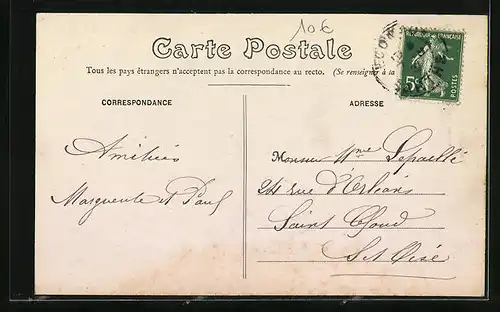 10€
Carte Postale
Tous les pays étrangers n'acceptent pas la correspondance au recto. (Se renseigner à la
REPUBLIQUE FRANÇAISE
5c
POSTES
CORRESPONDANCE
ADRESSE
Amitiés
Marguerite et Paul
Monsieur Mme Lepaillé
24 rue d'Orléans
Saint Cloud
S et Oise